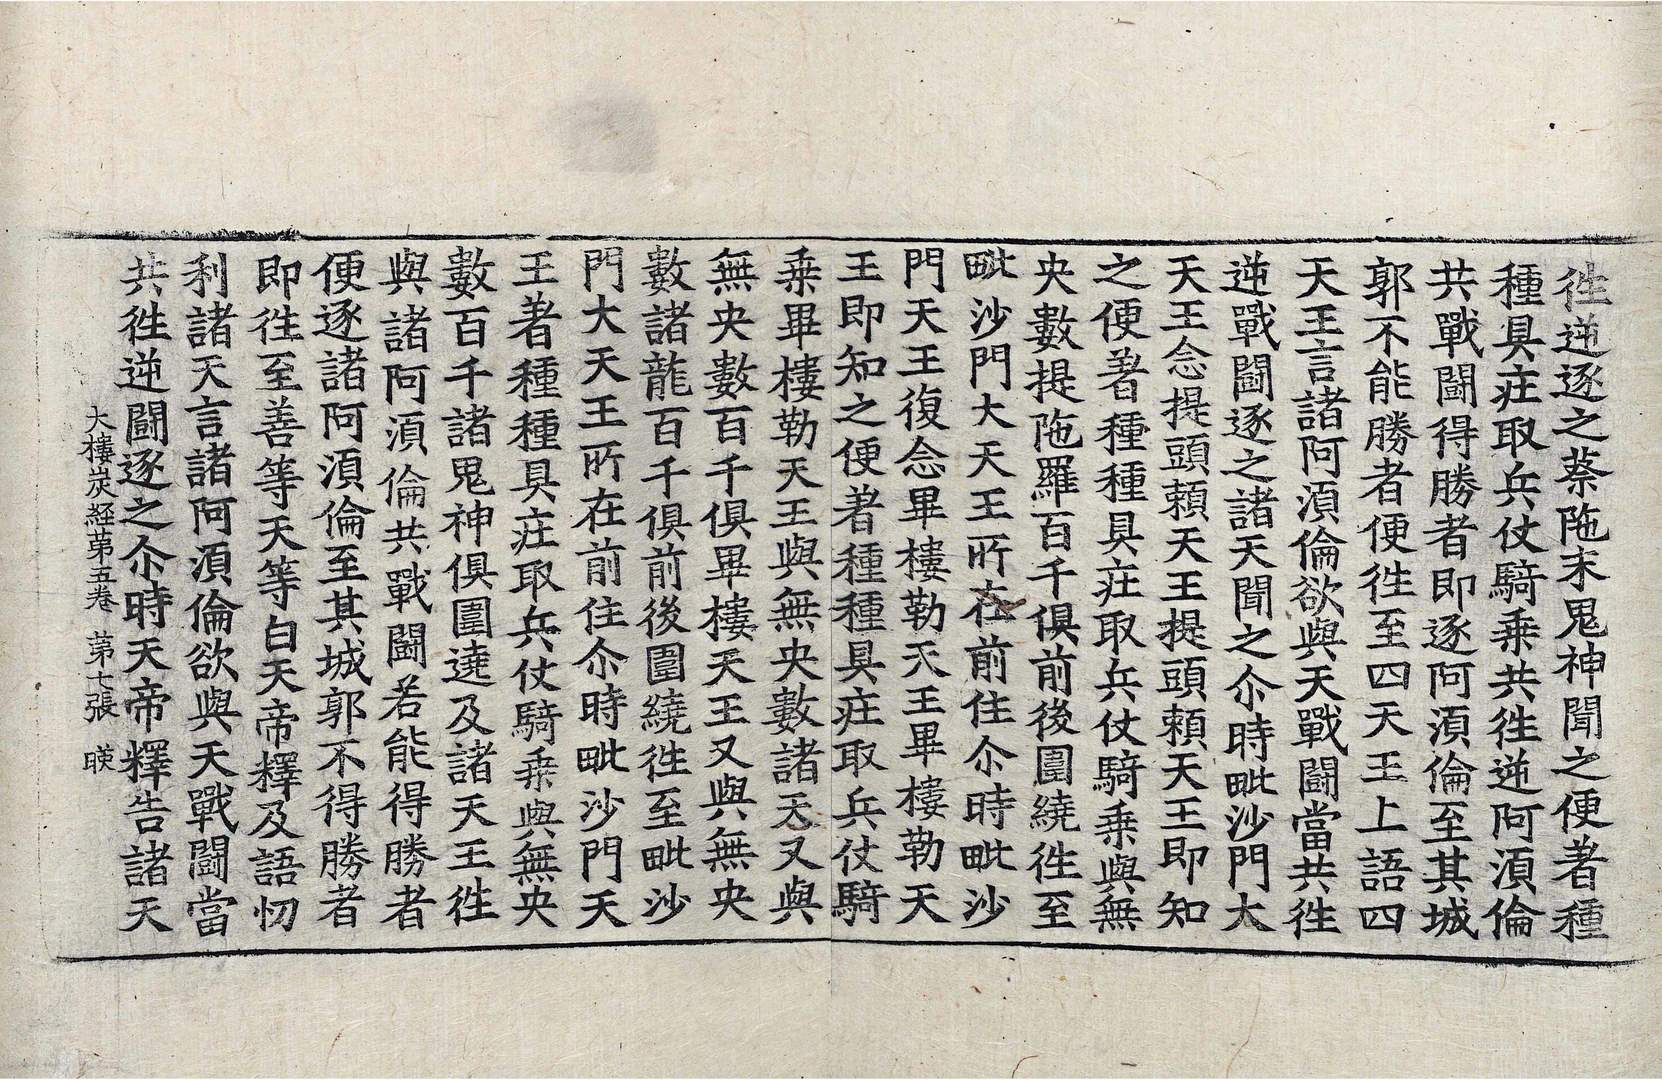 徃逆逐之蔡陁末鬼神聞之便著種
種具庄取兵仗騎乗共徃逆阿湏倫
共戰鬪得勝者即逐阿湏倫至其城
郭不能勝者便徃至四天王上語四
天王言諸阿湏倫欲與天戰鬪當共徃
逆戰鬪逐之諸天聞之尒時毗沙門大
天王念提頭頼天王提頭頼天王即知
之便著種種具庄取兵仗騎乗與無
央數提陁羅百千俱前後圍繞徃至
毗沙門大天王所在前住尒時毗沙
門天王復念畢樓勒天王畢樓勒天
王即知之便著種種具庄取兵仗騎
乗畢樓勒天王與無央數諸天又與
無央數百千俱畢樓天王又與無央
數諸龍百千俱前後圍繞徃至毗沙
門大天王所在前住尒時毗沙門天
王著種種具庄取兵仗騎乗與無央
數百千諸鬼神俱圍遶及諸天王徃
與諸阿湏倫共戰鬪若能得勝者
便逐諸阿湏倫至其城郭不得勝者
即徃至善等天等白天帝釋及語忉
利諸天言諸阿湏倫欲與天戰鬪當
共徃逆鬪逐之尒時天帝釋告諸天
大樓炭経苐五卷 苐七張 暎